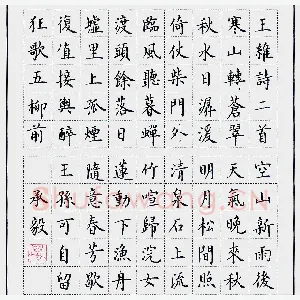 王維詩二首
寒山轉蒼翠
秋水日潺湲
倚仗柴門外
臨風聽暮蟬
渡頭餘落日
墟里上孤煙
復值接輿醉
狂歌五柳前
空山新雨後
天氣晚來秋
明月松間照
清泉石上流
竹喧歸浣女
蓮動下漁舟
隨意春芳歇
王孫可自留
承毅